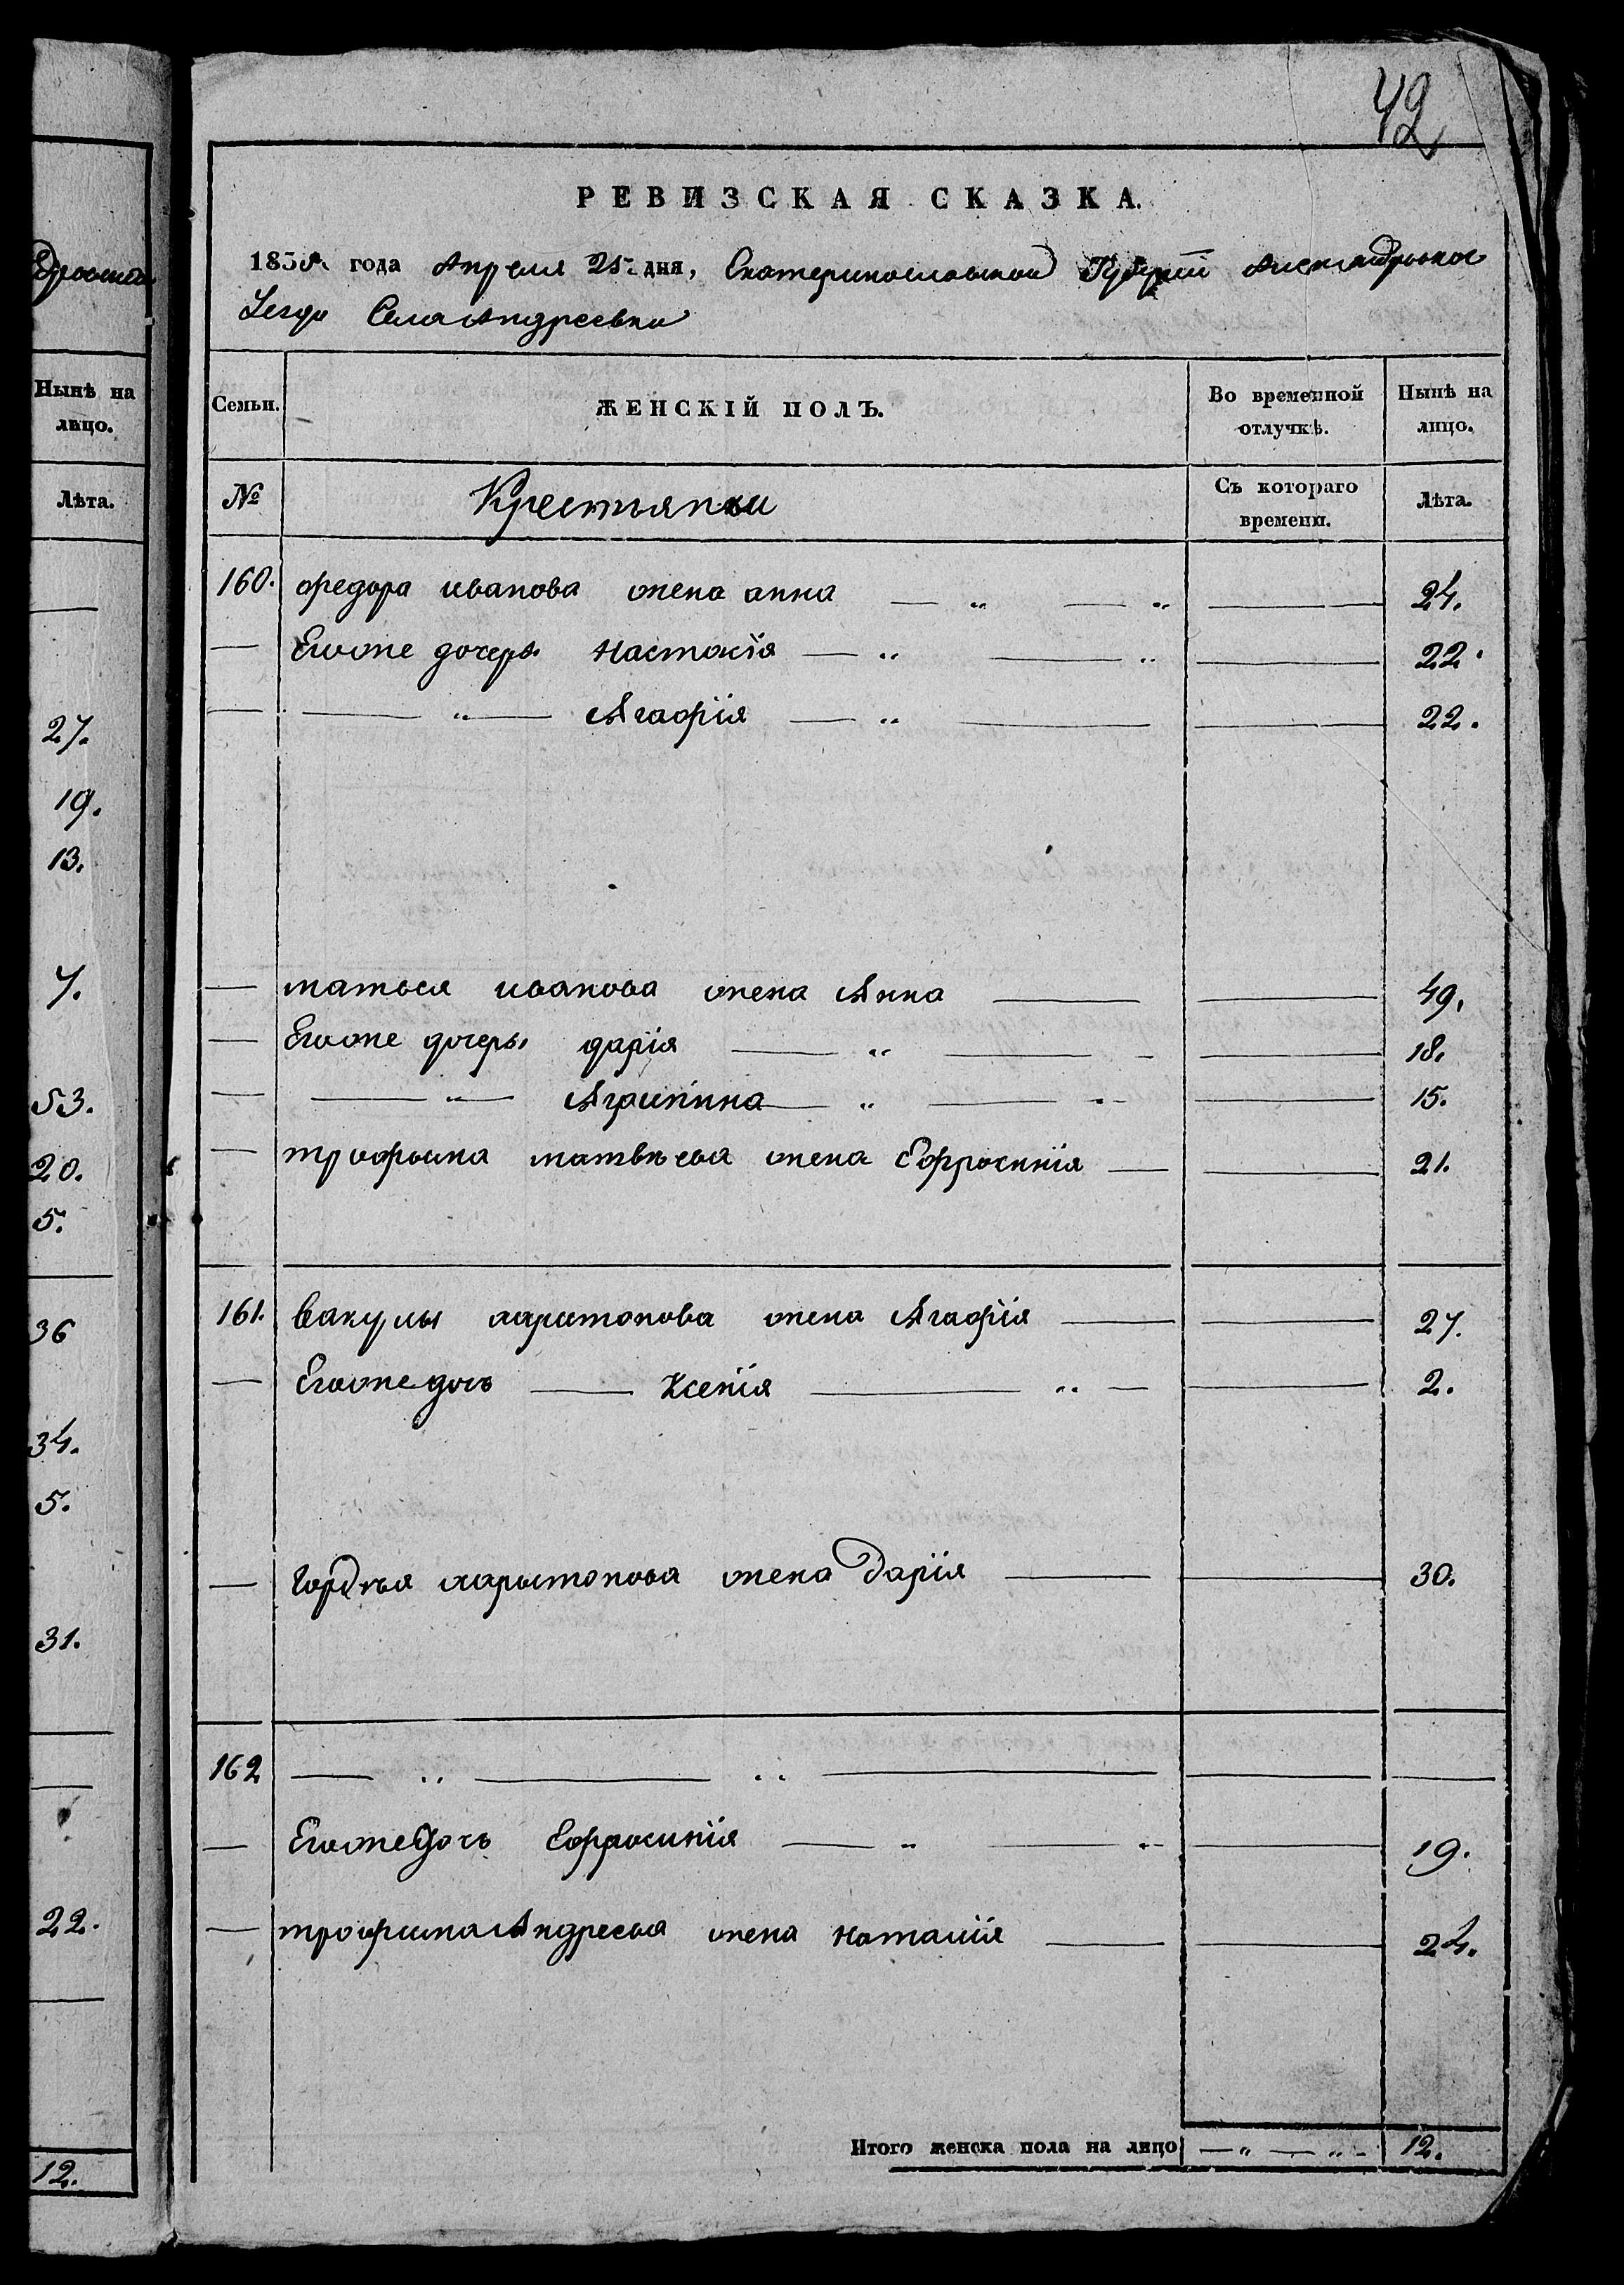 42
РЕВИЗСКАЯ СКАЗКА.
года Апреля 25 дня, Екатеринославской Губерніи Александровскаго
Уезда Села Андреевки
Семьи.
ЖЕНСКІЙ ПОЛЪ.
Во временной отлучкѣ.
Нынѣ на лицо.
№
Крестьянки
Съ котораго времени.
Лѣта.
160. федора иванова жена анна 24.
Егоже дочеры Настасія 22.
— „ — Агафія 22.
матвея иванова жена Анна 49.
Егоже дочеры дарія 18.
— „ — Аграпина 15.
трофыма матвѣева жена Ефросинія 21.
161. Вакулы харитонова жена Агафія 27.
Егоже дочь Ксенія 2.
Гордѣя харытонова жена Дарія 30.
162 — „ — „ —
Егоже Дочь Ефросинія 19.
трофима Андреева жена Наталія 24.
Итого женска пола на лицо — „ — „ - 12.
Нынѣ на
лицо.
Лѣта.
27.
19.
13.
7.
53.
20.
5.
36
34.
5.
31.
22.
12.